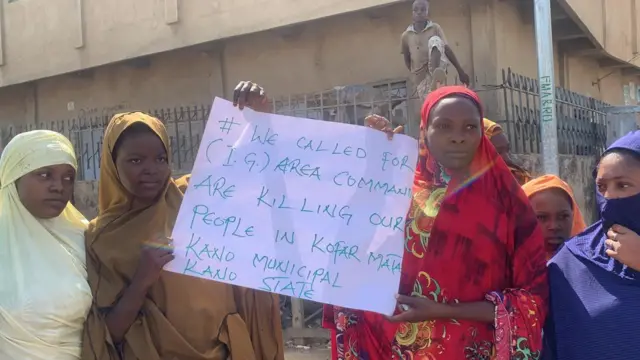 # WE CALLED FOR
(I.G) AREA COMMAN
ARE KILLING OUR
PEOPLE IN KOFAR MATA
KANO MUNICIPAL
KANO STATE